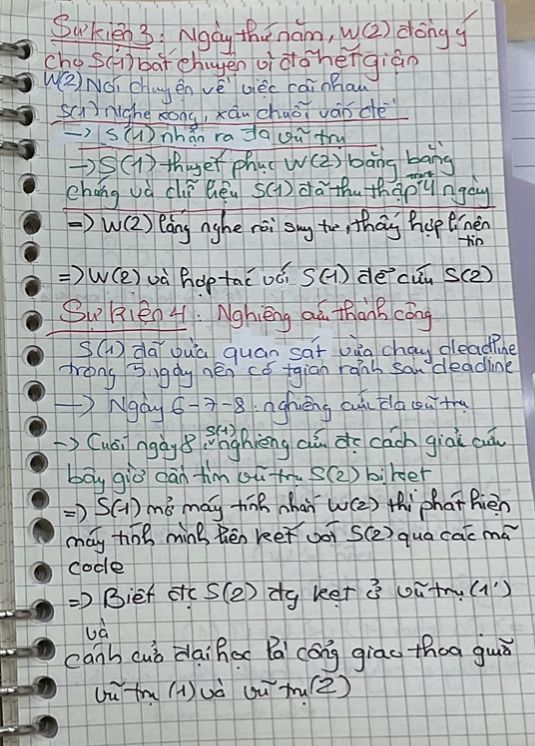 Sự kiện 3: Ngày thứ năm, W(2) đồng ý
cho S(1) bắt chuyện vì đã hết giận
W(2) Nói chuyện về việc cãi nhau
S(1) nghe xong, xâu chuỗi vấn đề
-> S(1) nhận ra đa vũ trụ
-> S(1) thuyết phục W(2) bằng bằng
chứng và dữ liệu S(1) đã thu thập trong 4 ngày
=> W(2) lắng nghe rồi suy tư, thấy hợp lí nên
tin
=> W(2) và hợp tác với S(1) để cứu S(2)
Sự kiện 4: Nghiêng cứu thành công
S(1) đã vừa quan sát vừa chạy deadline
trong 5 ngày nên có tgian rảnh sau deadline
-> Ngày 6-7-8: nghiêng cứu đa vũ trụ
-> Cuối ngày 8: S(1) nghiêng cứu đc cách giải cứu
bây giờ cần tìm vũ trụ S(2) bị kẹt
=> S(1) mở máy tính nhắn W(2) thì phát hiện
máy tính mình liên kết với S(2) qua các mã
code
=> Biết đc S(2) đg kẹt ở vũ trụ (1')
và
cánh cửa đại học là cổng giao thoa giữa
vũ trụ (1) và vũ trụ (2)